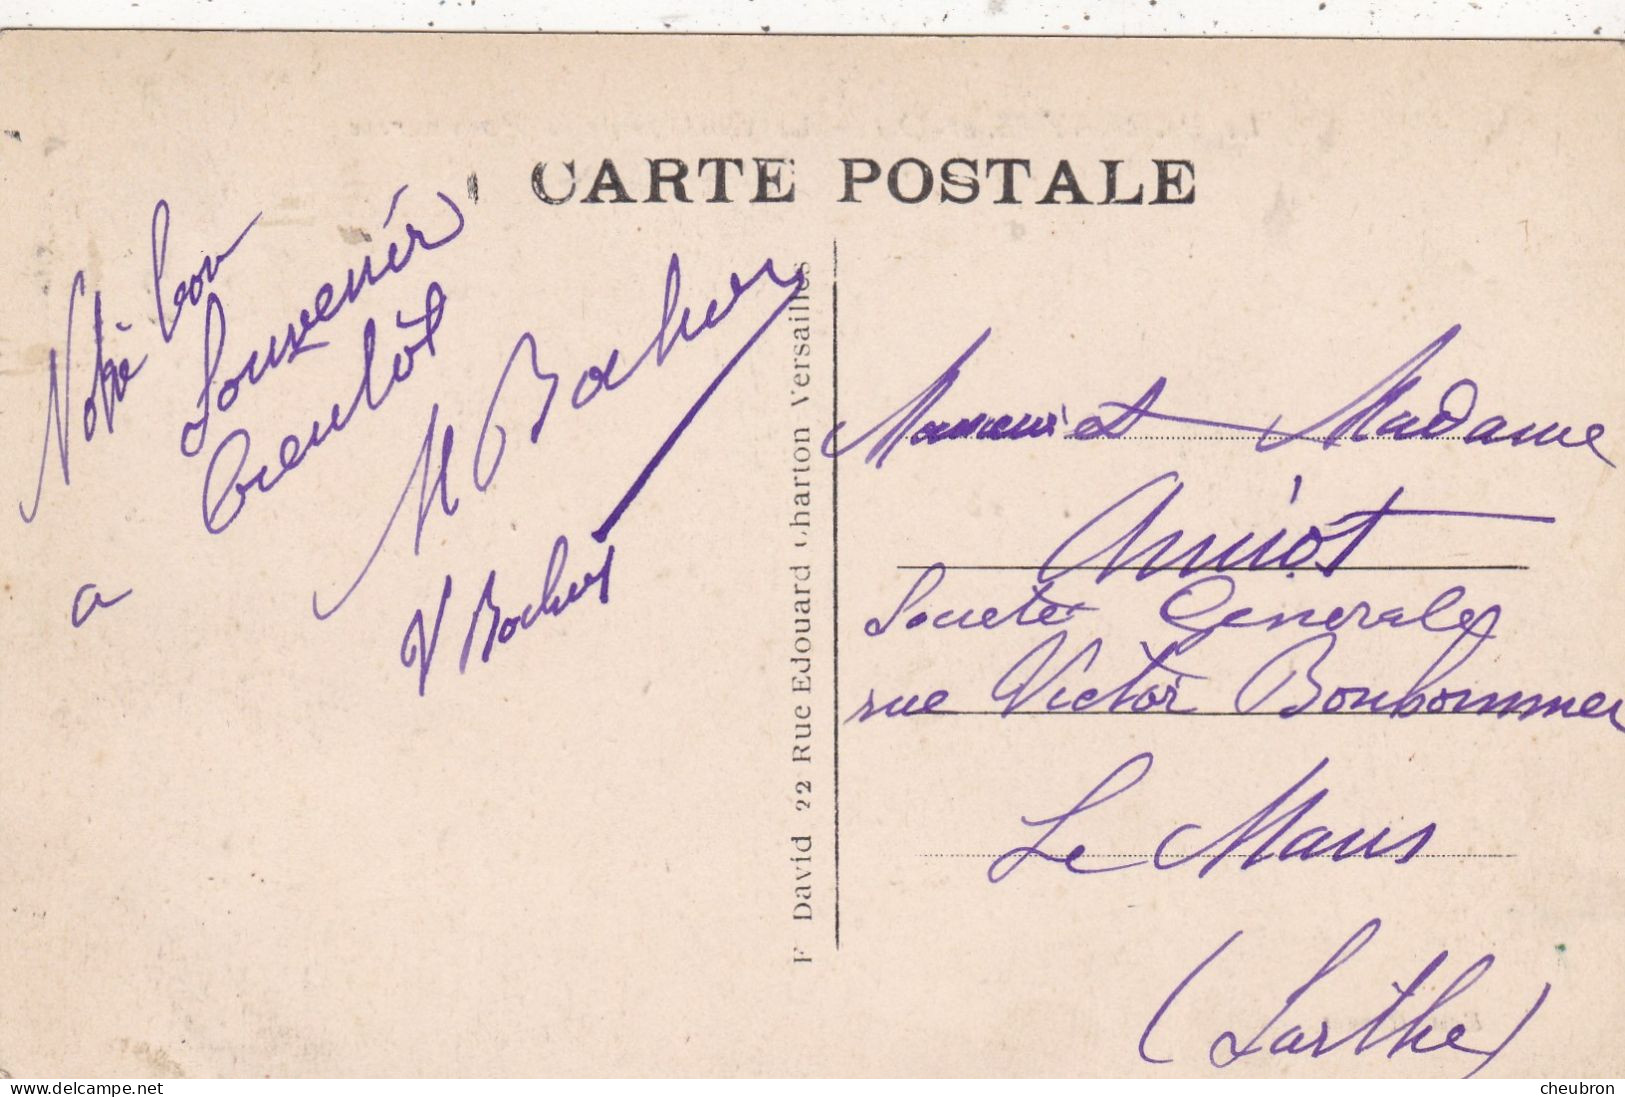 CARTE POSTALE
Notre bon
Souvenir
a bientôt
M Bocher
V Bocher
F David 22 Rue Edouard Charton Versailles
Monsieur et Madame
Amiot
Societe Generale
rue Victor Bonhommet
Le Mans
(Sarthe)
cheubron